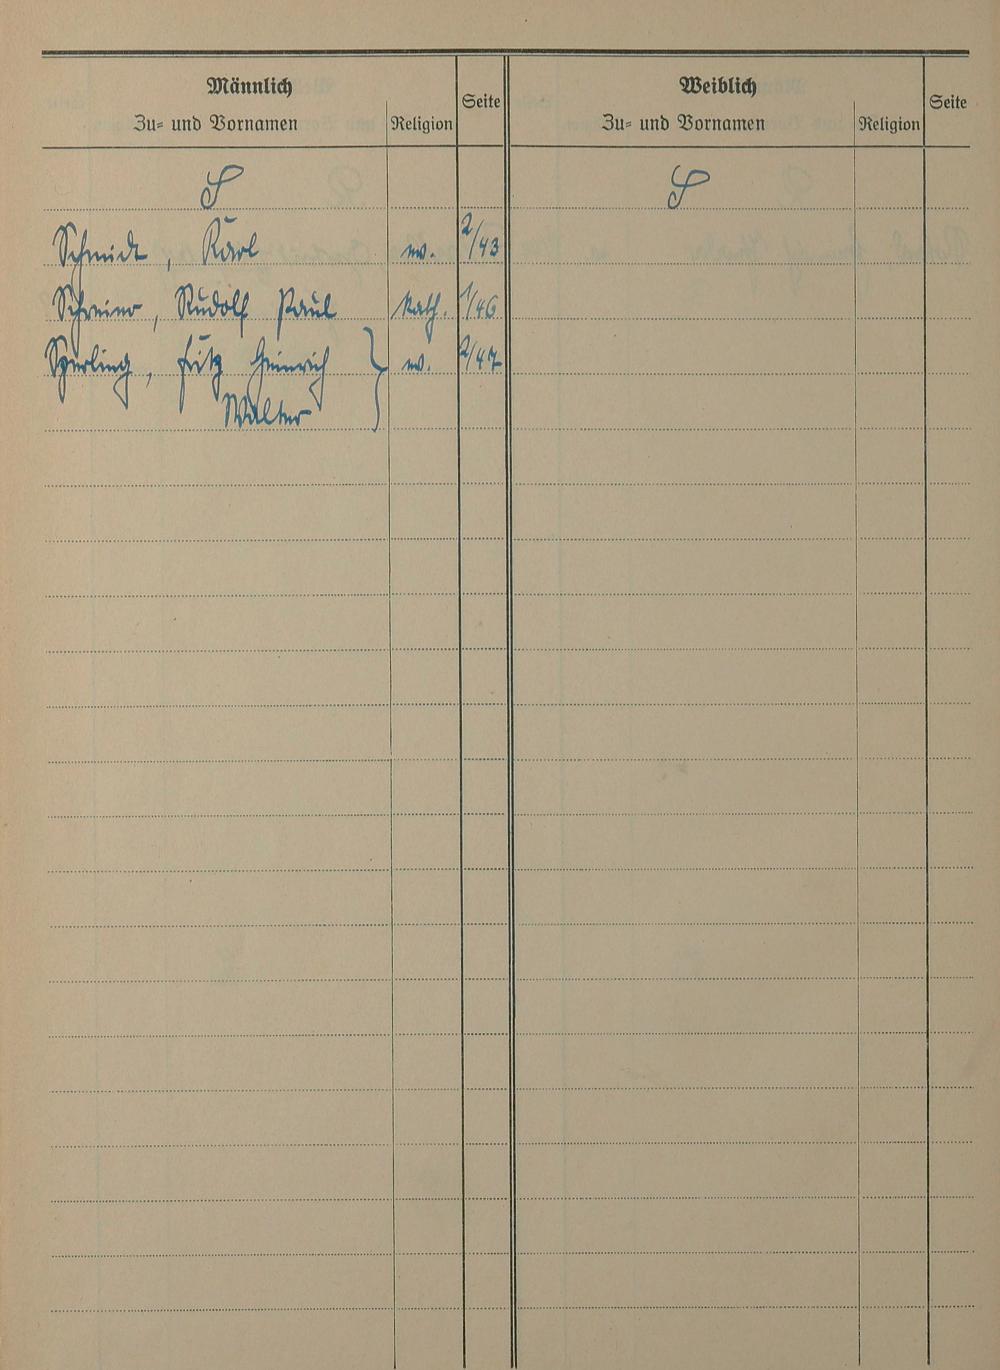 Männlich
Zu- und Vornamen Religion Seite
Weiblich
Zu- und Vornamen Religion Seite
S S
Schmidt, Karl ev. 2/43
Schreiner, Rudolf Paul kath. 1/46
Sperling, Fritz Heinrich } ev. 2/47
Walter